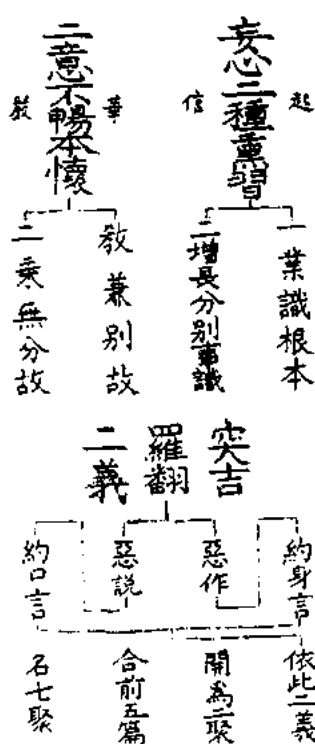 妄心二種熏習
起
信
一業識根本
二增長分別事識
二意不暢本懷
華
教兼別故
二乘無分故
突吉
羅翻
二義
約身言
惡作
惡說
約口言
依此二義
開為二聚
合前五篇
名七聚